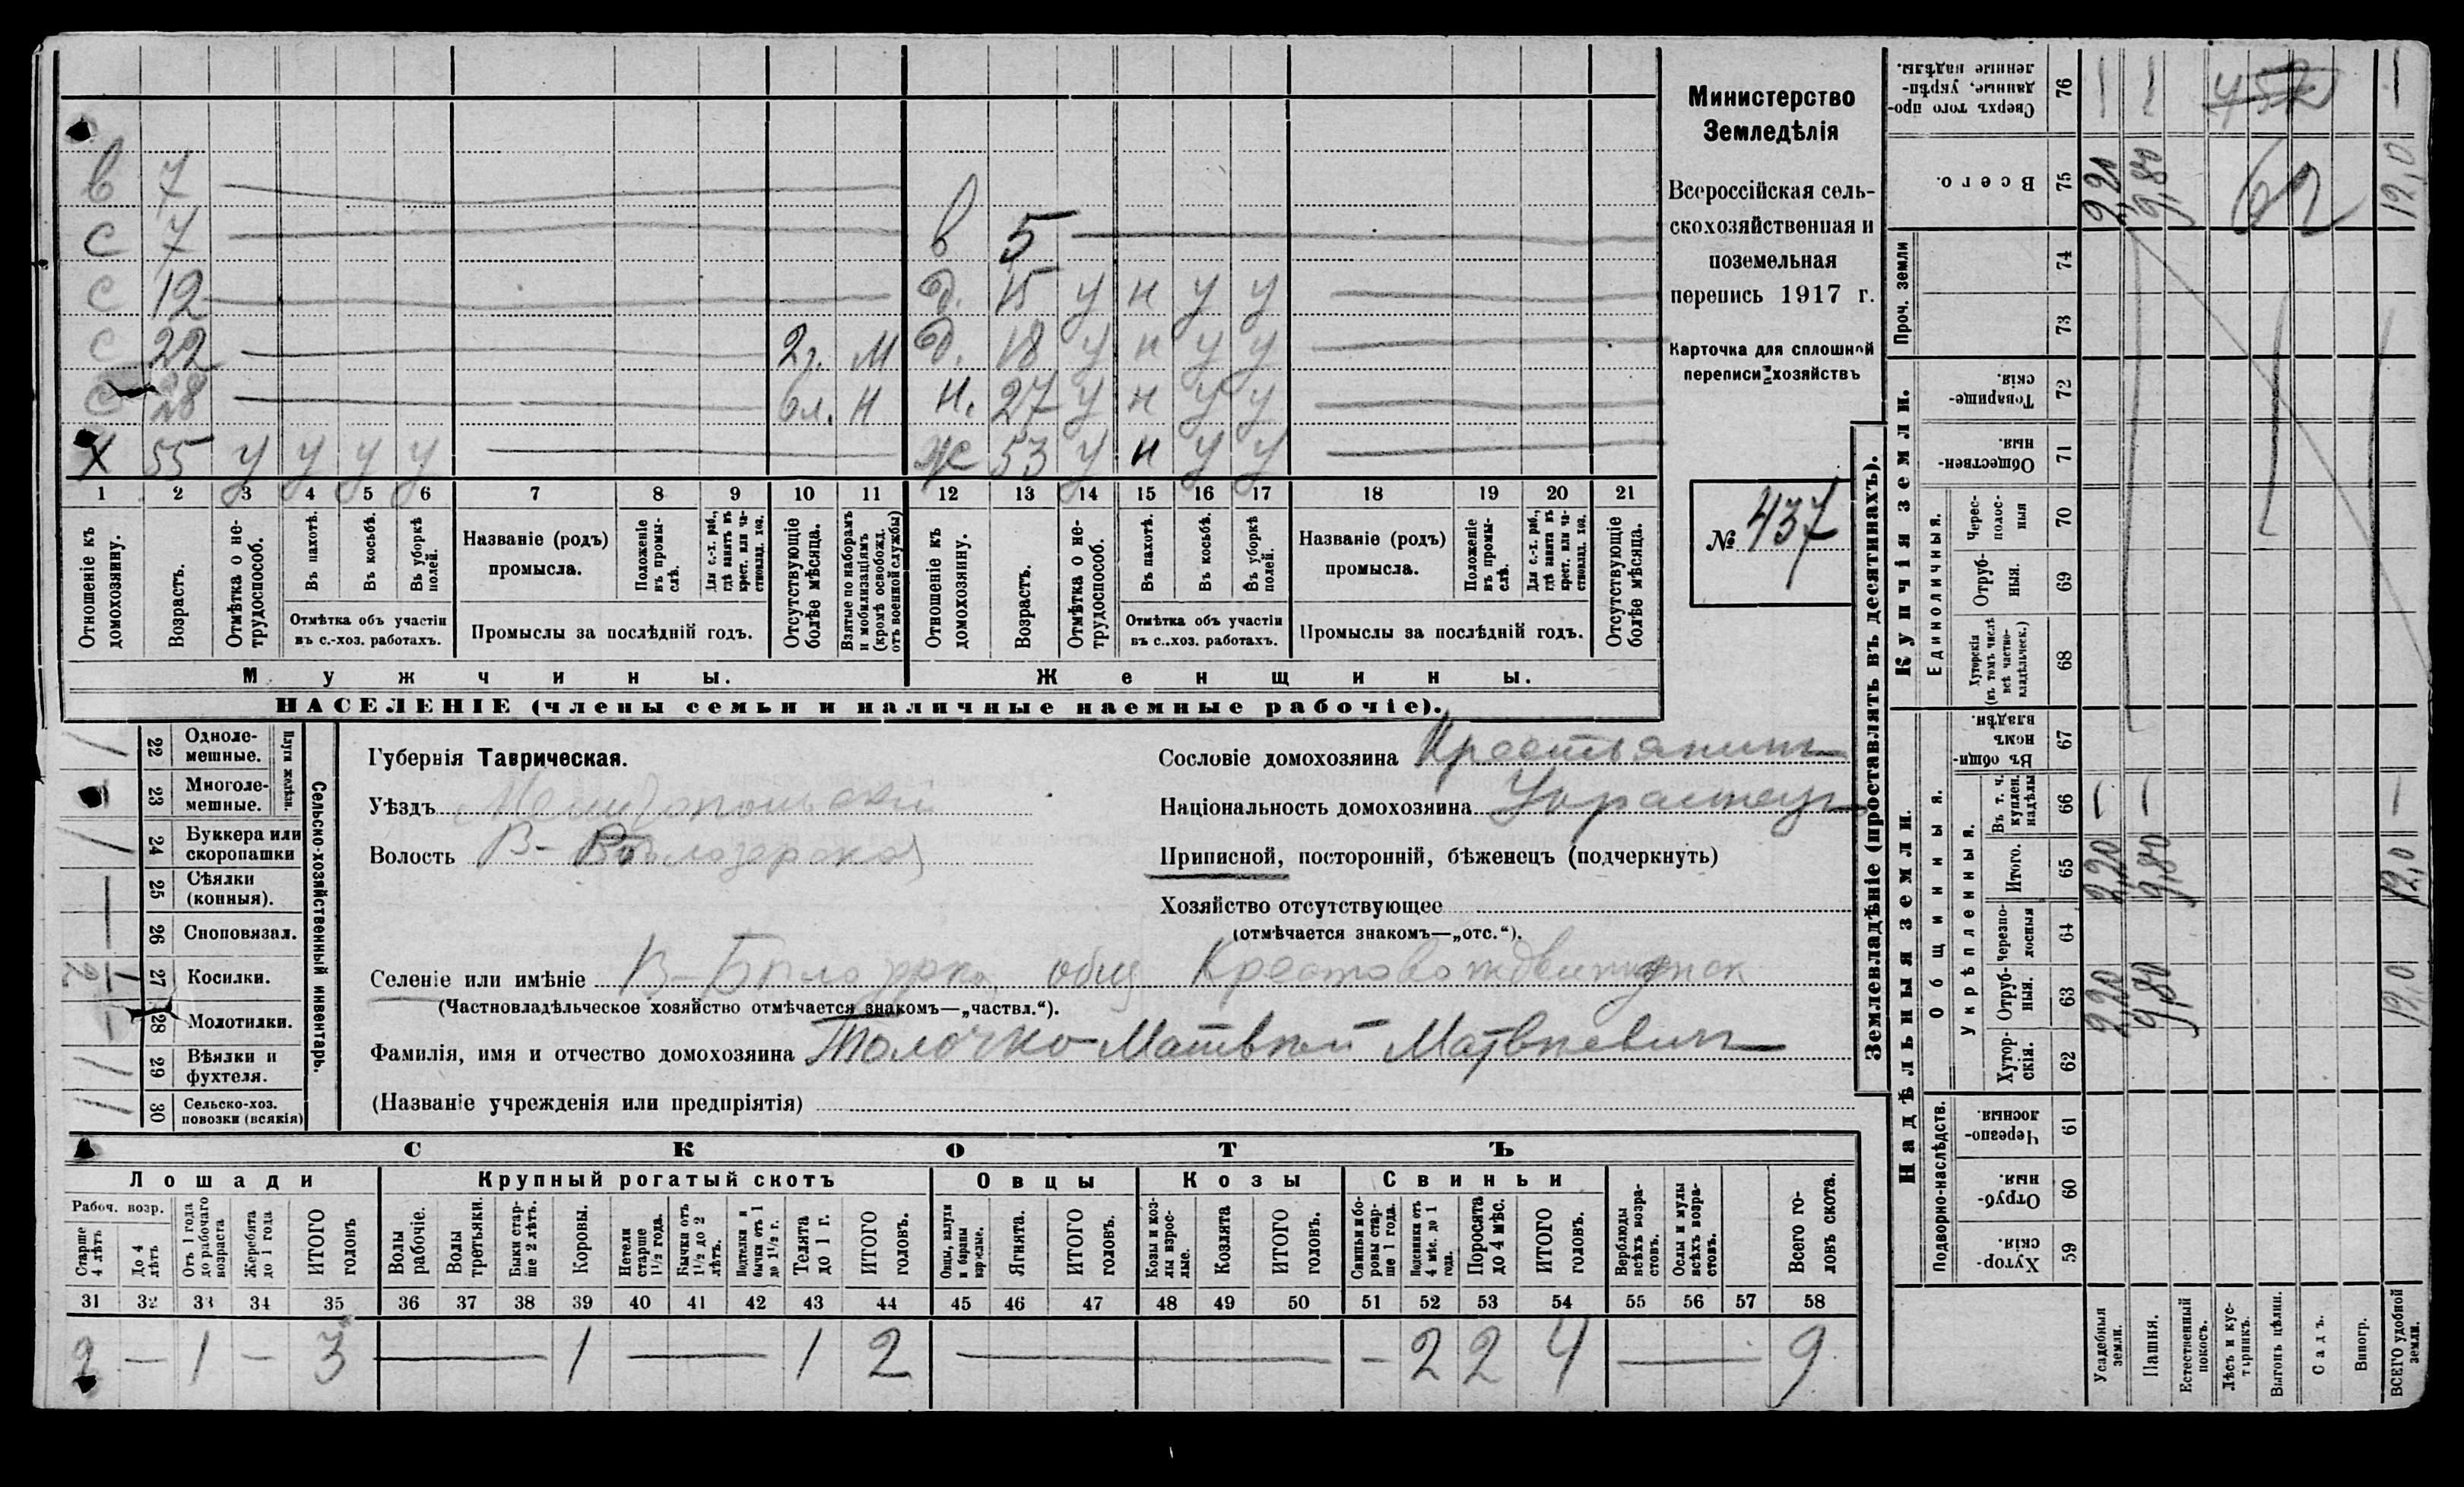 в 7
с 7 в 5
с 12 д. 15 у н у у
с 22 2 г. М д. 18 у н у у
с 28 6 л. Н н. 27 у н у у
х 55 у у у у ж 53 у н у у
1 2 3 4 5 6 7 8 9 10 11 12 13 14 15 16 17 18 19 20 21
Отношеніе къ домохозяину.
Возрастъ.
Отмѣтка о нетрудоспособ.
Въ пахотѣ.
Въ косьбѣ.
Въ уборкѣ полей.
Отмѣтка объ участіи въ с.-хоз. работахъ.
Названіе (родъ) промысла.
Положеніе въ промыслѣ.
Для с.-х. раб., гдѣ занятъ въ крест. или частновлад. хоз.
Промыслы за послѣдній годъ.
Отсутствующіе болѣе мѣсяца.
Взятые по наборамъ и мобилизаціямъ (кромѣ освобожд. отъ военной службы)
Отношеніе къ домохозяину.
Возрастъ.
Отмѣтка о нетрудоспособ.
Въ пахотѣ.
Въ косьбѣ.
Въ уборкѣ полей.
Отмѣтка объ участіи въ с..хоз. работахъ.
Названіе (родъ) промысла.
Положеніе въ промыслѣ.
Для с.-х. раб., гдѣ занята въ крест. или частновлад. хоз.
Промыслы за послѣдній годъ.
Отсутствующіе болѣе мѣсяца.
Мужчины. Женщины.
НАСЕЛЕНІЕ (члены семьи и наличные наемные рабочіе).
Министерство
Земледѣлія
Всероссійская сель-
скохозяйственная и
поземельная
перепись 1917 г.
Карточка для сплошной
переписи хозяйствъ
№ 437
22 Однолемешные.
23 Многолемешные.
Плуги желѣзн.
24 Буккера или скоропашки
25 Сѣялки (конныя).
26 Сноповязал.
27 Косилки.
28 Молотилки.
29 Вѣялки и фухтеля.
30 Сельско-хоз. повозки (всякія)
Сельско-хозяйственный инвентарь.
Губернія Таврическая.
Уѣздъ Мелитопольскій
Волость В-Бѣлозерская
Селеніе или имѣніе В-Бѣлозерка, общ Крестовоздвиженск
(Частновладѣльческое хозяйство отмѣчается знакомъ—„частвл.“).
Фамилія, имя и отчество домохозяина Толочко Матвѣй Матвѣевич
(Названіе учрежденія или предпріятія)
Сословіе домохозяина Крестьянин
Національность домохозяина Украинец
Приписной, посторонній, бѣженецъ (подчеркнуть)
Хозяйство отсутствующее
(отмѣчается знакомъ—„отс.“).
СКОТЪ
Лошади Крупный рогатый скотъ Овцы Козы Свиньи
Рабоч. возр.
Старше 4 лѣтъ
До 4 лѣтъ
Отъ 1 года до рабочаго возраста
Жеребята до 1 года
ИТОГО головъ
Волы рабочіе.
Волы третьяки.
Быки старше 2 лѣтъ.
Коровы.
Нетели старше 1½ года.
Бычки отъ 1½ до 2 лѣтъ.
Подтелки и бычки отъ 1 до 1½ г.
Телята до 1 г.
ИТОГО головъ.
Овцы, валухи и бараны взрослые.
Ягнята.
ИТОГО головъ.
Козы и козлы взрослые.
Козлята
ИТОГО головъ.
Свиньи и боровы старше 1 года.
Подсвинки отъ 4 мѣс. до 1 года.
Поросята до 4 мѣс.
ИТОГО головъ.
Верблюды всѣхъ возрастовъ.
Ослы и мулы всѣхъ возрастовъ.
Всего головъ скота.
31 32 33 34 35 36 37 38 39 40 41 42 43 44 45 46 47 48 49 50 51 52 53 54 55 56 57 58
2 — 1 — 3 — 1 — 1 2 — - 2 2 4 — 9
Землевладѣніе (проставлять въ десятинахъ).
Надѣльныя земли. Купчія земли. Проч. земли
Подворно-наслѣдств. Общинныя. Укрѣпленныя. Единоличныя.
59 Хуторскія.
60 Отрубныя.
61 Черезполосныя.
62 Хуторскія.
63 Отрубныя. 2,20 9,80 12,0
64 Черезполосныя
65 Итого. 2,20 9,80 12,0
66 Въ т. ч. куплен. надѣлы — — —
67 Въ общинномъ владѣн.
68 Хуторскія (въ томъ числѣ всѣ частновладѣльческ.)
69 Отрубныя.
70 Черезполосныя
71 Общественныя.
72 Товарищескія.
73
74
75 Всего. 2,20 9,80 12,0
76 Сверхъ того проданные, укрѣпленные надѣлы. — — —
452
62
Усадебныя земли.
Пашня.
Естественный покосъ.
Лѣсъ и кустарникъ.
Выгонь цѣлин.
Садъ.
Виногр.
ВСЕГО удобной земли.